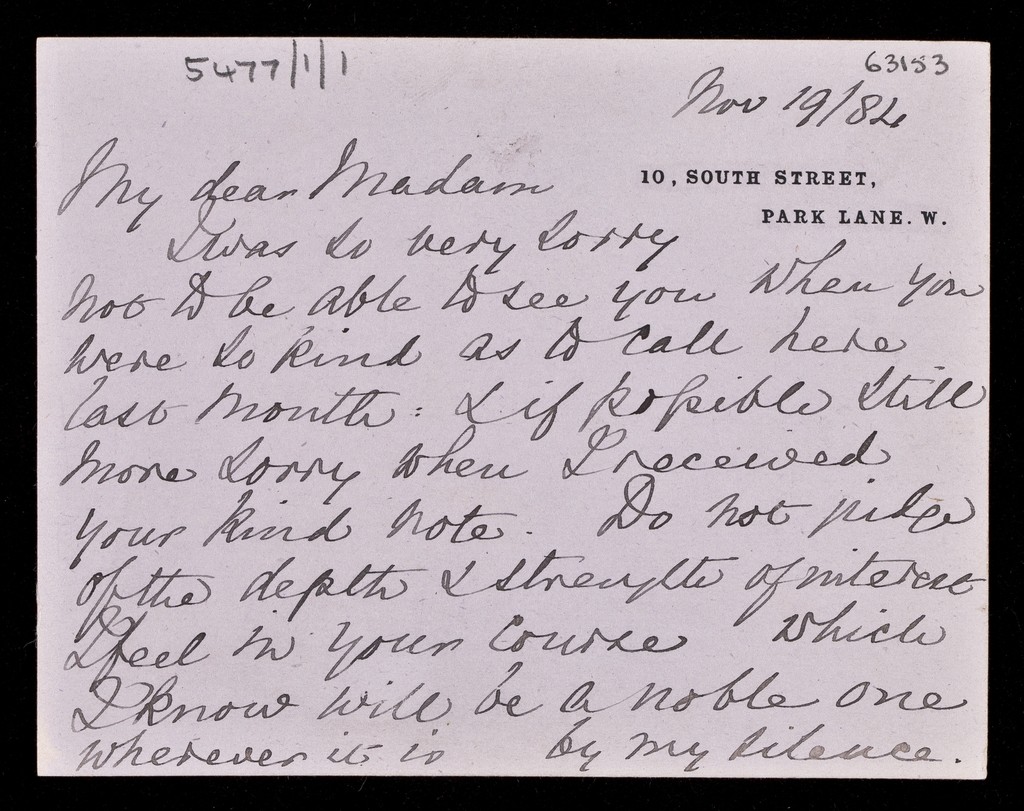 5477/1/1
63153
Nov 19/84
10, SOUTH STREET,
PARK LANE. W.
My dear Madam
I was so very sorry
not to be able to see you when you
were so kind as to call here
last month: & if possible still
more sorry when I received
your kind note. Do not judge
of the depth & strength of interest
I feel in your course which
I know will be a noble one
wherever it is by my silence.